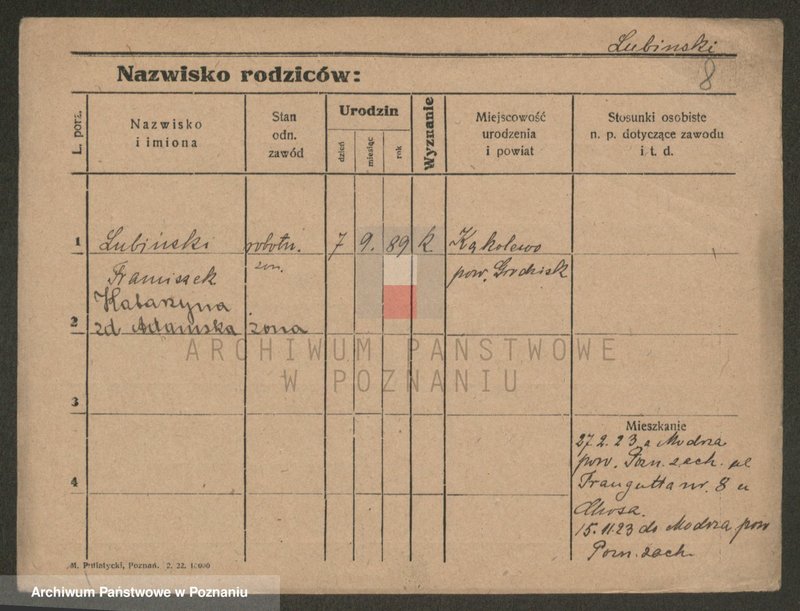 Lubinski
8
Nazwisko rodziców:
L. porz.
Nazwisko
i imiona
Stan
odn.
zawód
Urodzin
dzień
miesiąc
rok
Wyznanie
Miejscowość
urodzenia
i powiat
Stosunki osobiste
n. p. dotyczące zawodu
i t. d.
1 Lubiński robotn. 7 9. 89 k. Kąkolewo
Franciszek zon. pow. Grodzisk
Katarzyna
2 zd Adamska żona
ARCHIWUM PAŃSTWOWE
W POZNANIU
3
Mieszkanie
27.2.23 z Modrza
pow. Pozn. zach. ul
4 Traugutta nr. 8 u
15.11.23 do Modrza pow
Pozn. zach.
M. Putiatycki, Poznań. 2. 22. 10000
Archiwum Państwowe w Poznaniu